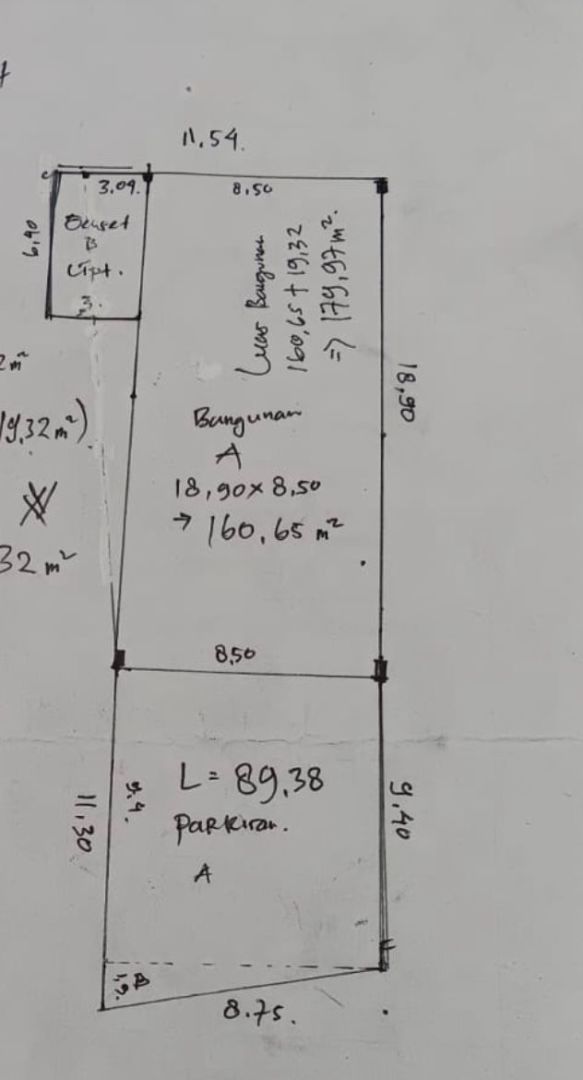 11.54.
3.04.
8,50
6,40
B
Lipt.
3.
Luas Bangunan
160,65 + 19,32
=> 179,97 m².
18,90
2 m²
19,32 m²)
32 m²
Bangunan
A
18,90 x 8,50
→ 160,65 m²
8,50
L = 89,38
Parkiran.
A
11,30
9.4.
9,40
1,9.
8.75.